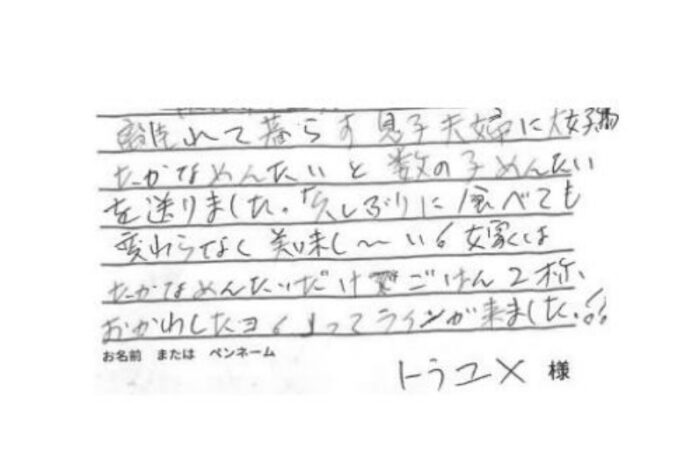 離れて暮らす息子夫婦に大好物
たかなめんたいと数の子めんたい
を送りました。「久しぶりに食べても
変わらなく美味し〜い。嫁くは
たかなめんたいだけでごはん2杯、
おかわしたヨ。」ってラインが来ました。!!
お名前 または ペンネーム
トラユメ 様